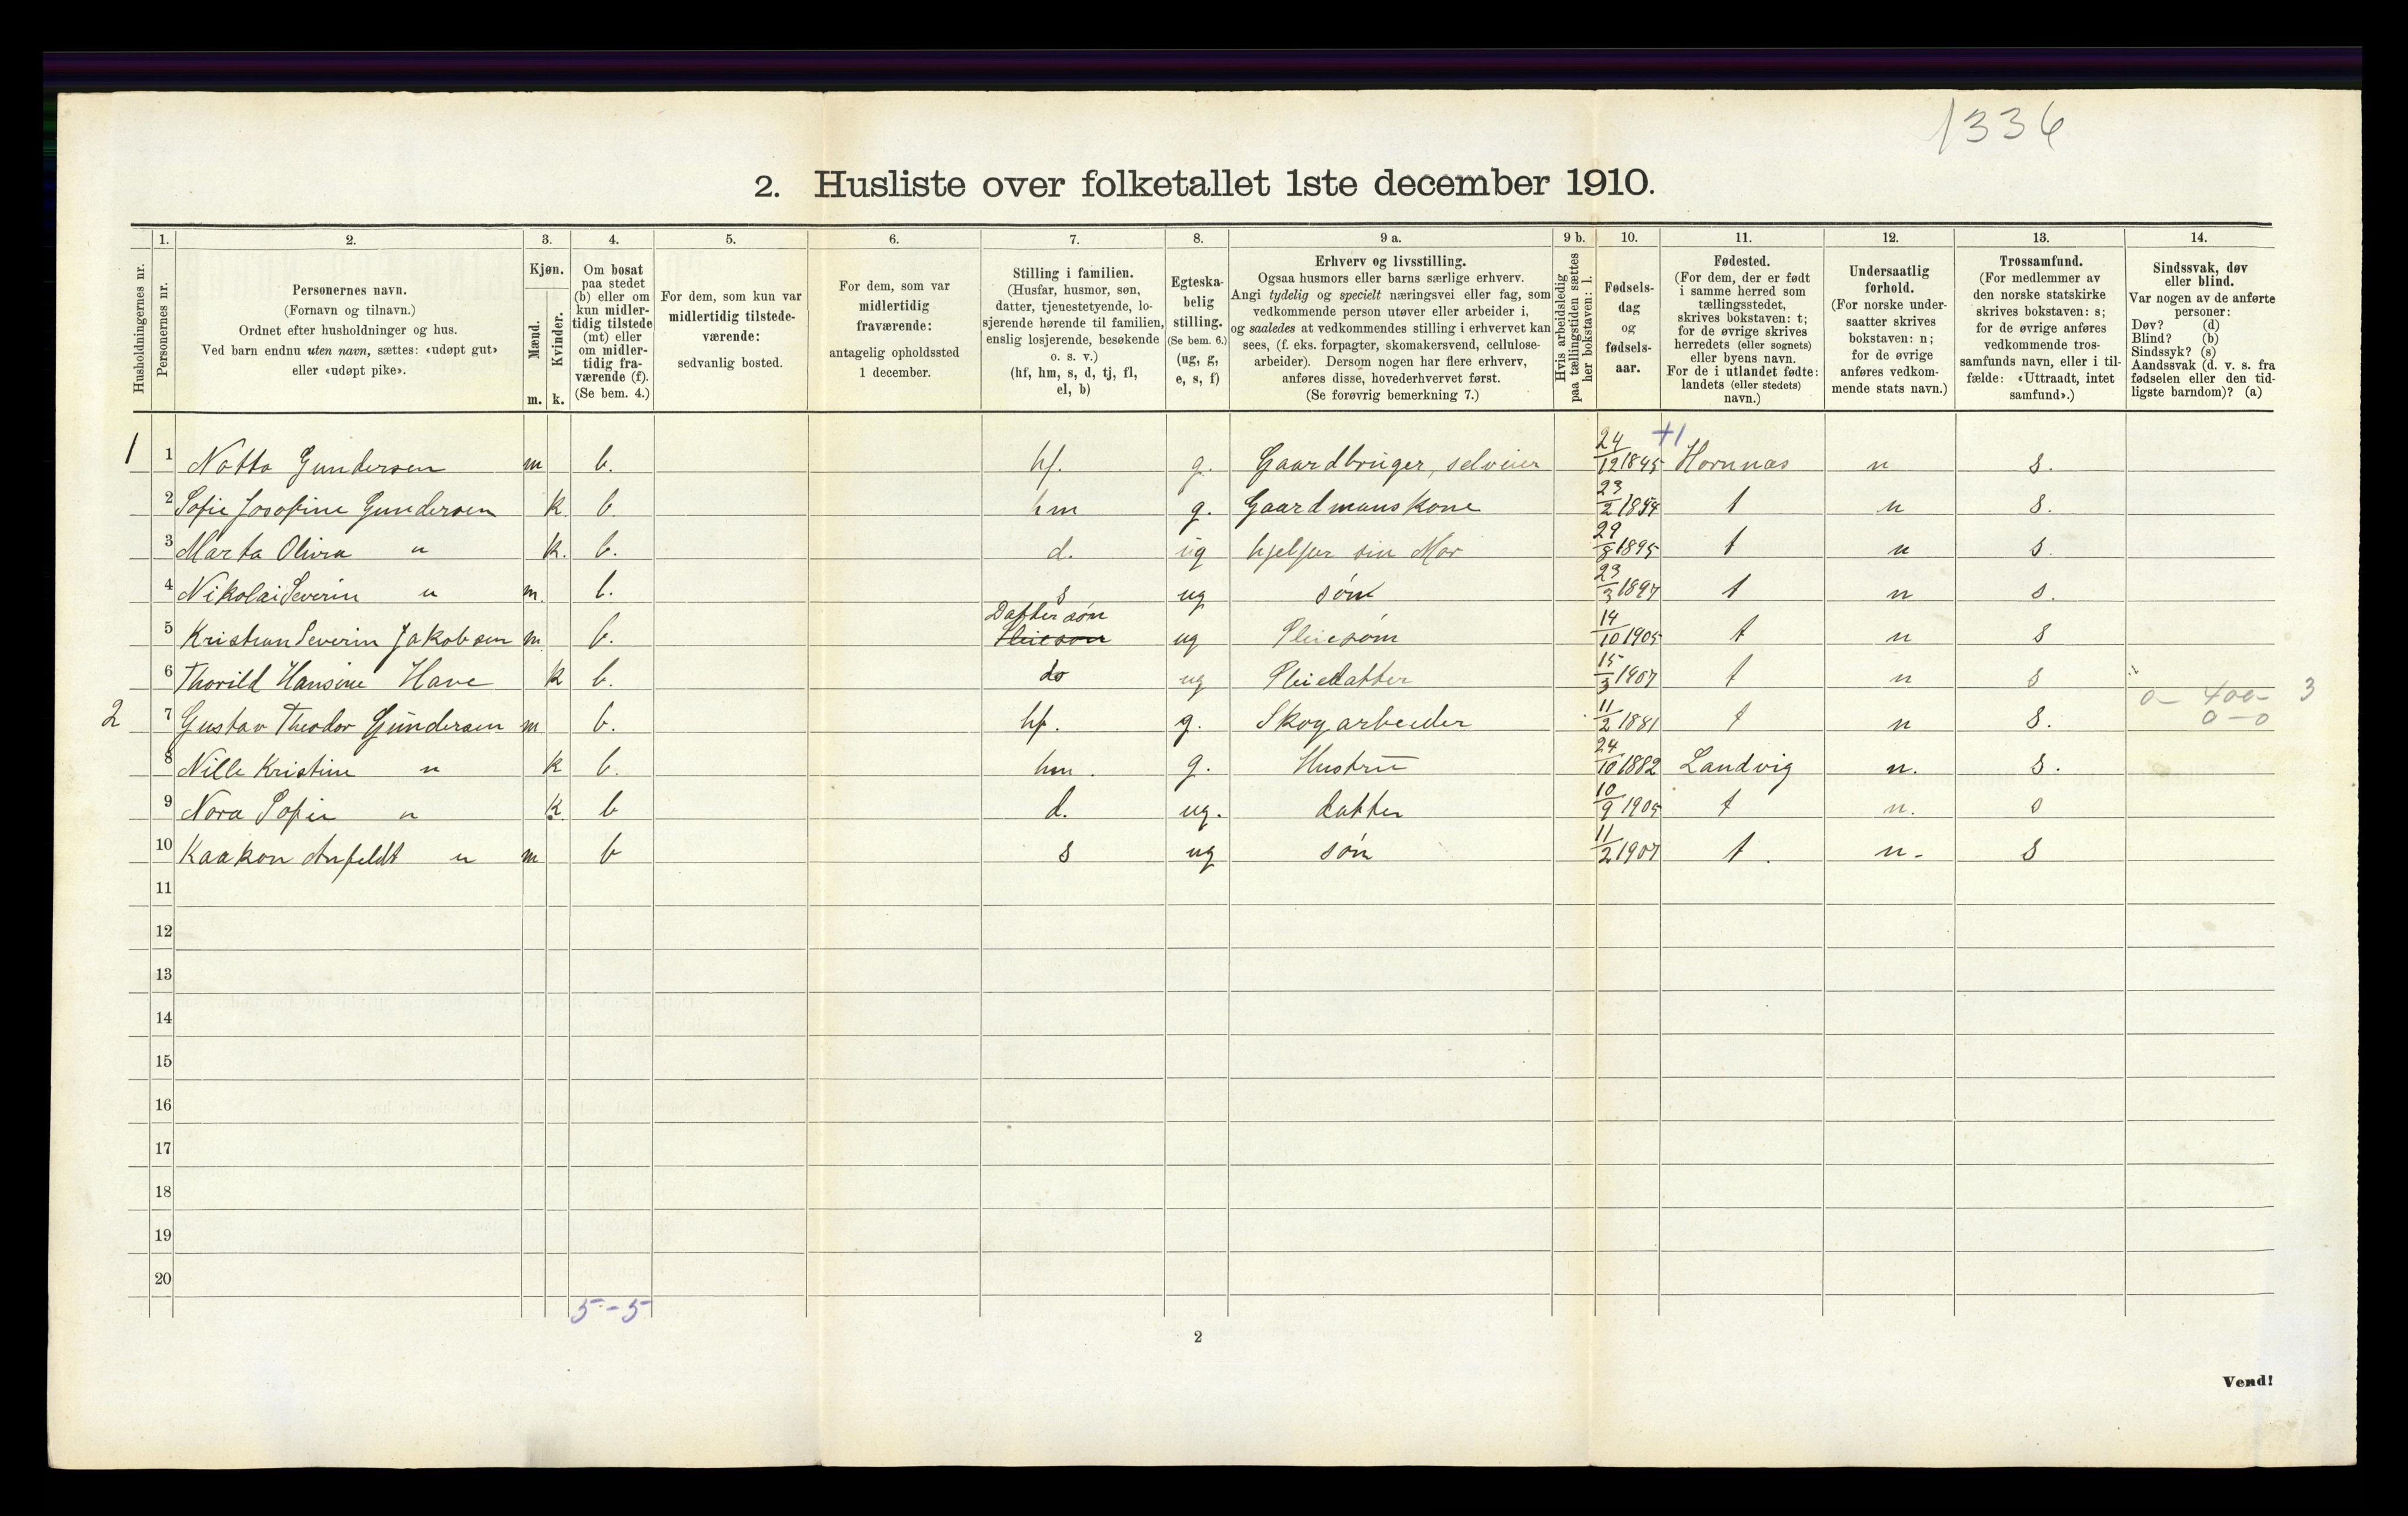 1336
2. Husliste over folketallet 1ste december 1910.
Husholdningernes nr.
1. Personernes nr.
2. Personernes navn.
(Fornavn og tilnavn.)
Ordnet efter husholdninger og hus.
Ved barn endnu uten navn, sættes: «udøpt gut»
eller «udøpt pike».
3. Kjøn.
Mænd. Kvinder.
m. k.
4. Om bosat
paa stedet
(b) eller om
kun midler-
tidig tilstede
(mt) eller
om midler-
tidig fra-
værende (f).
(Se bem. 4.)
5. For dem, som kun var
midlertidig tilstede-
værende:
sedvanlig bosted.
6. For dem, som var
midlertidig
fraværende:
antagelig opholdssted
1 december.
7. Stilling i familien.
(Husfar, husmor, søn,
datter, tjenestetyende, lo-
sjerende hørende til familien,
enslig losjerende, besøkende
o. s. v.)
(hf, hm, s, d, tj, fl,
el, b)
8. Egteska-
belig
stilling.
(Se bem. 6.)
(ug, g,
e, s, f)
9 a. Erhverv og livsstilling.
Ogsaa husmors eller barns særlige erhverv.
Angi tydelig og specielt næringsvei eller fag, som
vedkommende person utøver eller arbeider i,
og saaledes at vedkommendes stilling i erhvervet kan
sees, (f. eks. forpagter, skomakersvend, cellulose-
arbeider). Dersom nogen har flere erhverv,
anføres disse, hovederhvervet først.
(Se forøvrig bemerkning 7.)
9 b. Hvis arbeidsledig
paa tællingstiden sættes
her bokstaven: l.
10. Fødsels-
dag
og
fødsels-
aar.
11. Fødested.
(For dem, der er født
i samme herred som
tællingsstedet,
skrives bokstaven: t;
for de øvrige skrives
herredets (eller sognets)
eller byens navn.
For de i utlandet fødte:
landets (eller stedets)
navn.)
12. Undersaatlig
forhold.
(For norske under-
saatter skrives
bokstaven: n;
for de øvrige
anføres vedkom-
mende stats navn.)
13. Trossamfund.
(For medlemmer av
den norske statskirke
skrives bokstaven: s;
for de øvrige anføres
vedkommende tros-
samfunds navn, eller i til-
fælde: «Uttraadt, intet
samfund».)
14. Sindssvak, døv
eller blind.
Var nogen av de anførte
personer:
Døv? (d)
Blind? (b)
Sindssyk? (s)
Aandssvak (d. v. s. fra
fødselen eller den tid-
ligste barndom)? (a)
+1
1 1 Notto Gundersen m b. hf. g. Gaardbruger, selveier 24/12 1845 Hornnas n s.
2 Sofie Josofine Gundersen k b. hm g. Gaardmanskone 23/2 1854 t n s.
3 Marta Olivia " k. b. d. ug hjelper sin Mor 29/8 1895 t n s.
4 Nikolai Severin " m. b. s ug søn 23/3 1897 t n s.
Dattersøn
5 Kristian Severin Jakobsen m b. Pleiesøn ug Pleiesøn 14/10 1905 t n s
6 Thorild Hansine Have k b. do ug Pleiedatter 15/3 1907 t n s
0 - 400 - 3
2 7 Gustav Theodor Gundersen m b. hf. g. Skogarbeider 11/2 1881 t n s. 0 - 0
8 Nille Kristine " k b. hm. g. Hustru 24/10 1882 Landvig n. s.
9 Nora Sofie " k. b d. ug. datter 10/9 1905 t n. s
10 Haakon Anfeldt " m b s ug søn 11/2 1907 t. n. s
11
12
13
14
15
16
17
18
19
20
5 - 5
2
Vend!